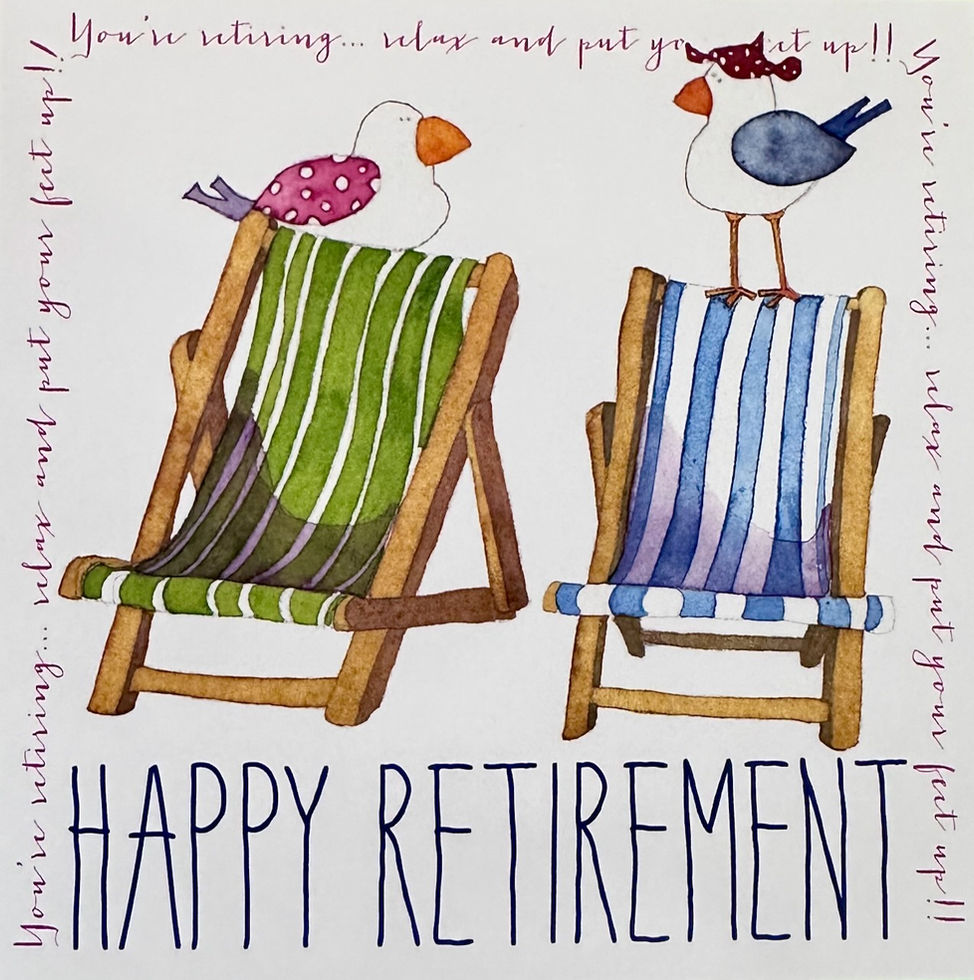 You're retiring... relax and put yo et up!!
You're retiring... relax and put your feet up!!
You're retiring... relax and put your feet up!!
HAPPY RETIREMENT